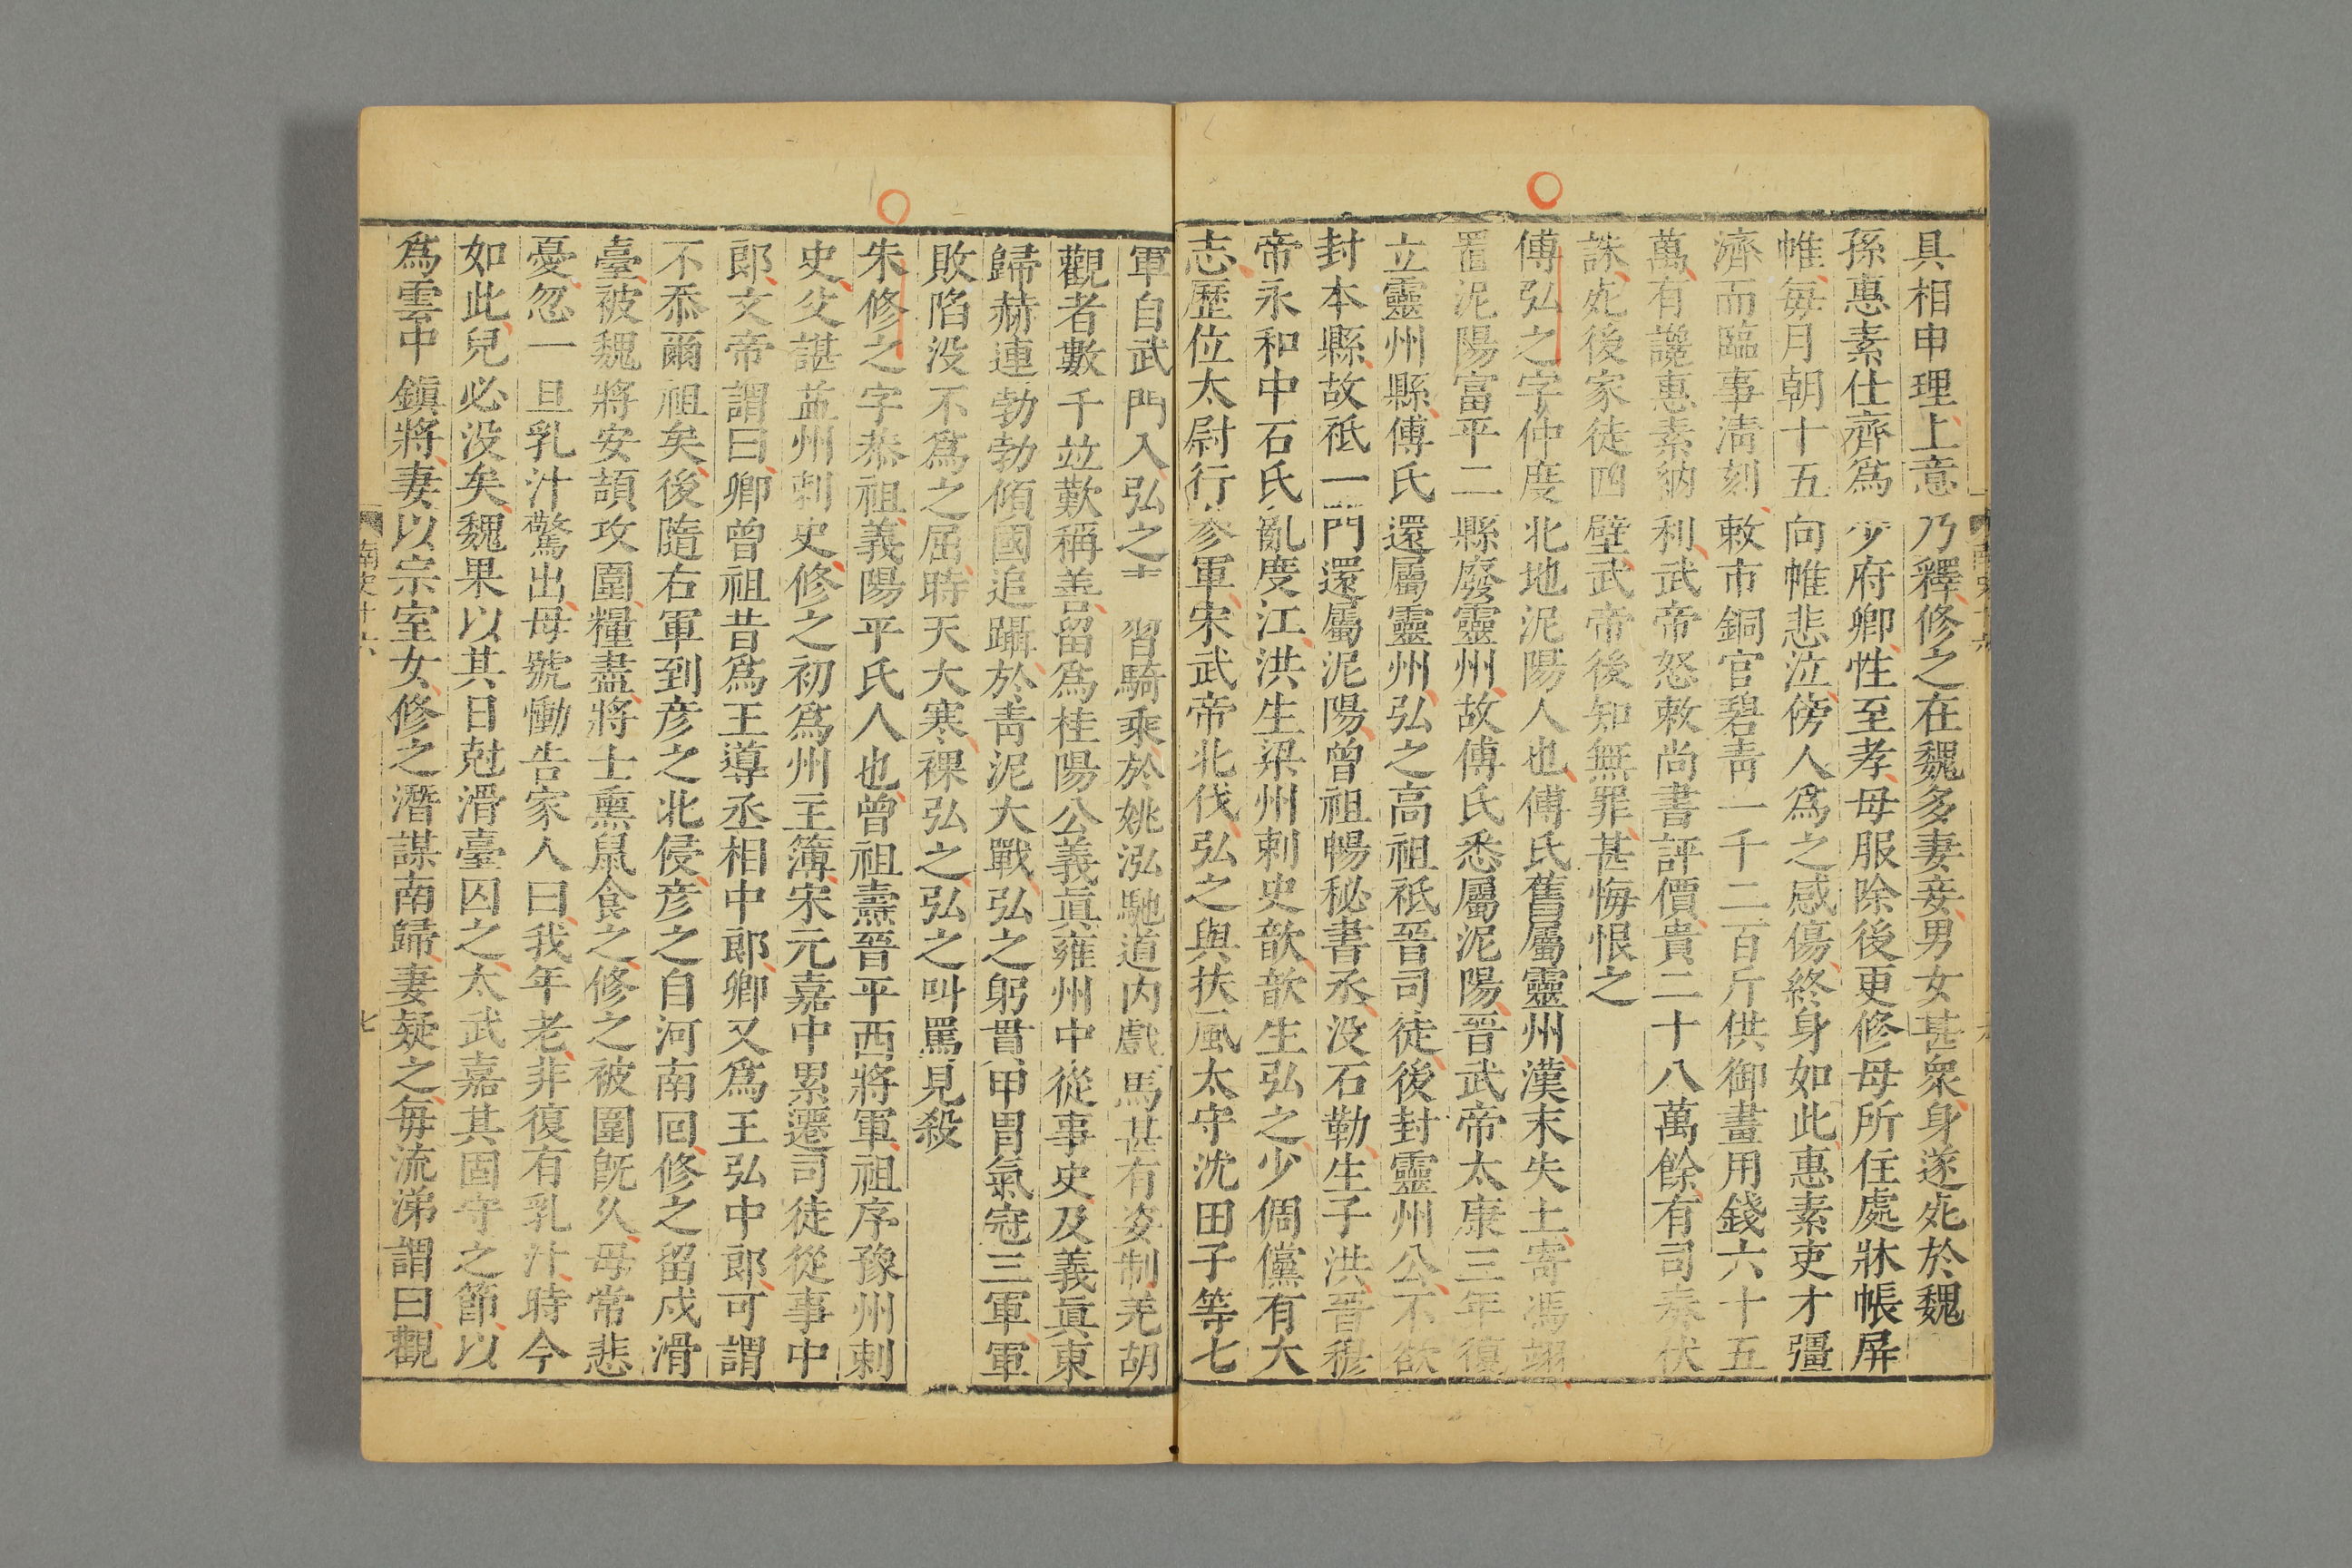 具相申理上意乃釋修之在魏多妻妾男女甚衆身遂死於魏
孫惠素仕齊爲少府卿性至孝母服除後更修母所住處牀帳屏
帷毎月朝十五向帷悲泣傍人爲之感傷終身如此惠素吏才彊
濟而臨事淸刻敕市銅官碧靑一千二百斤供御畫用錢六十五
萬有讒惠素納利武帝怒敕尚書評價貴二十八萬餘有司奏伏
誅死後家徒四壁武帝後知無罪甚悔恨之
傅弘之字仲度北地泥陽人也傅氏舊屬靈州漢末失土寄馮翊
置泥陽富平二縣廢靈州故傅氏悉屬泥陽晉武帝太康三年復
立靈州縣傅氏還屬靈州弘之高祖祗晉司徒後封靈州公不欲
封本縣故祗一門還屬泥陽曾祖暢秘書丞没石勒生子洪晉穆
帝永和中石氏亂度江洪生梁州刺史歆歆生弘之少倜儻有大
志歷位太尉行參軍宋武帝北伐弘之與扶風太守沈田子等七
軍自武門入弘之 習騎乘於姚泓馳道内戲馬甚有姿制羌胡
觀者數千竝歎稱善留爲桂陽公義眞雍州中從事史及義眞東
歸赫連勃勃傾國追躡於靑泥大戰弘之躬貫甲冑氣冠三軍軍
敗陷没不爲之屈時天大寒裸弘之弘之叫罵見殺
朱修之字恭祖義陽平氏人也曾祖燾晉平西將軍祖序豫州刺
史父諶益州刺史修之初爲州主簿宋元嘉中累遷司徒從事中
郎文帝謂曰卿曾祖昔爲王導丞相中郎卿又爲王弘中郎可謂
不忝爾祖矣後隨右軍到彦之北侵彦之自河南回修之留戍滑
臺被魏將安頡攻圍糧盡將士熏鼠食之修之被圍旣久母常悲
憂忽一旦乳汁驚出母號慟告家人曰我年老非復有乳汁時今
如此兒必没矣魏果以其日尅滑臺囚之太武嘉其固守之節以
爲雲中鎭將妻以宗室女修之潛謀南歸妻疑之毎流涕謂曰觀
南史十六
七